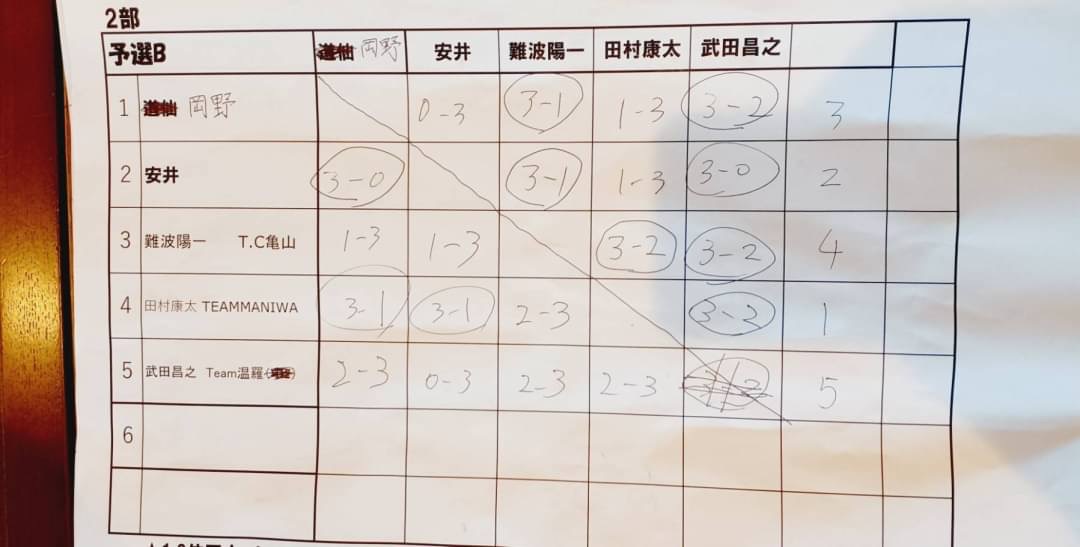 2部
予選B 岡野 安井 難波陽一 田村康太 武田昌之
1 岡野 0-3 3-1 1-3 3-2 3
2 安井 3-0 3-1 1-3 3-0 2
3 難波陽一 T.C亀山 1-3 1-3 3-2 3-2 4
4 田村康太 TEAMMANIWA 3-1 3-1 2-3 1
5 武田昌之 Team温羅 2-3 0-3 2-3 2-3 5
6